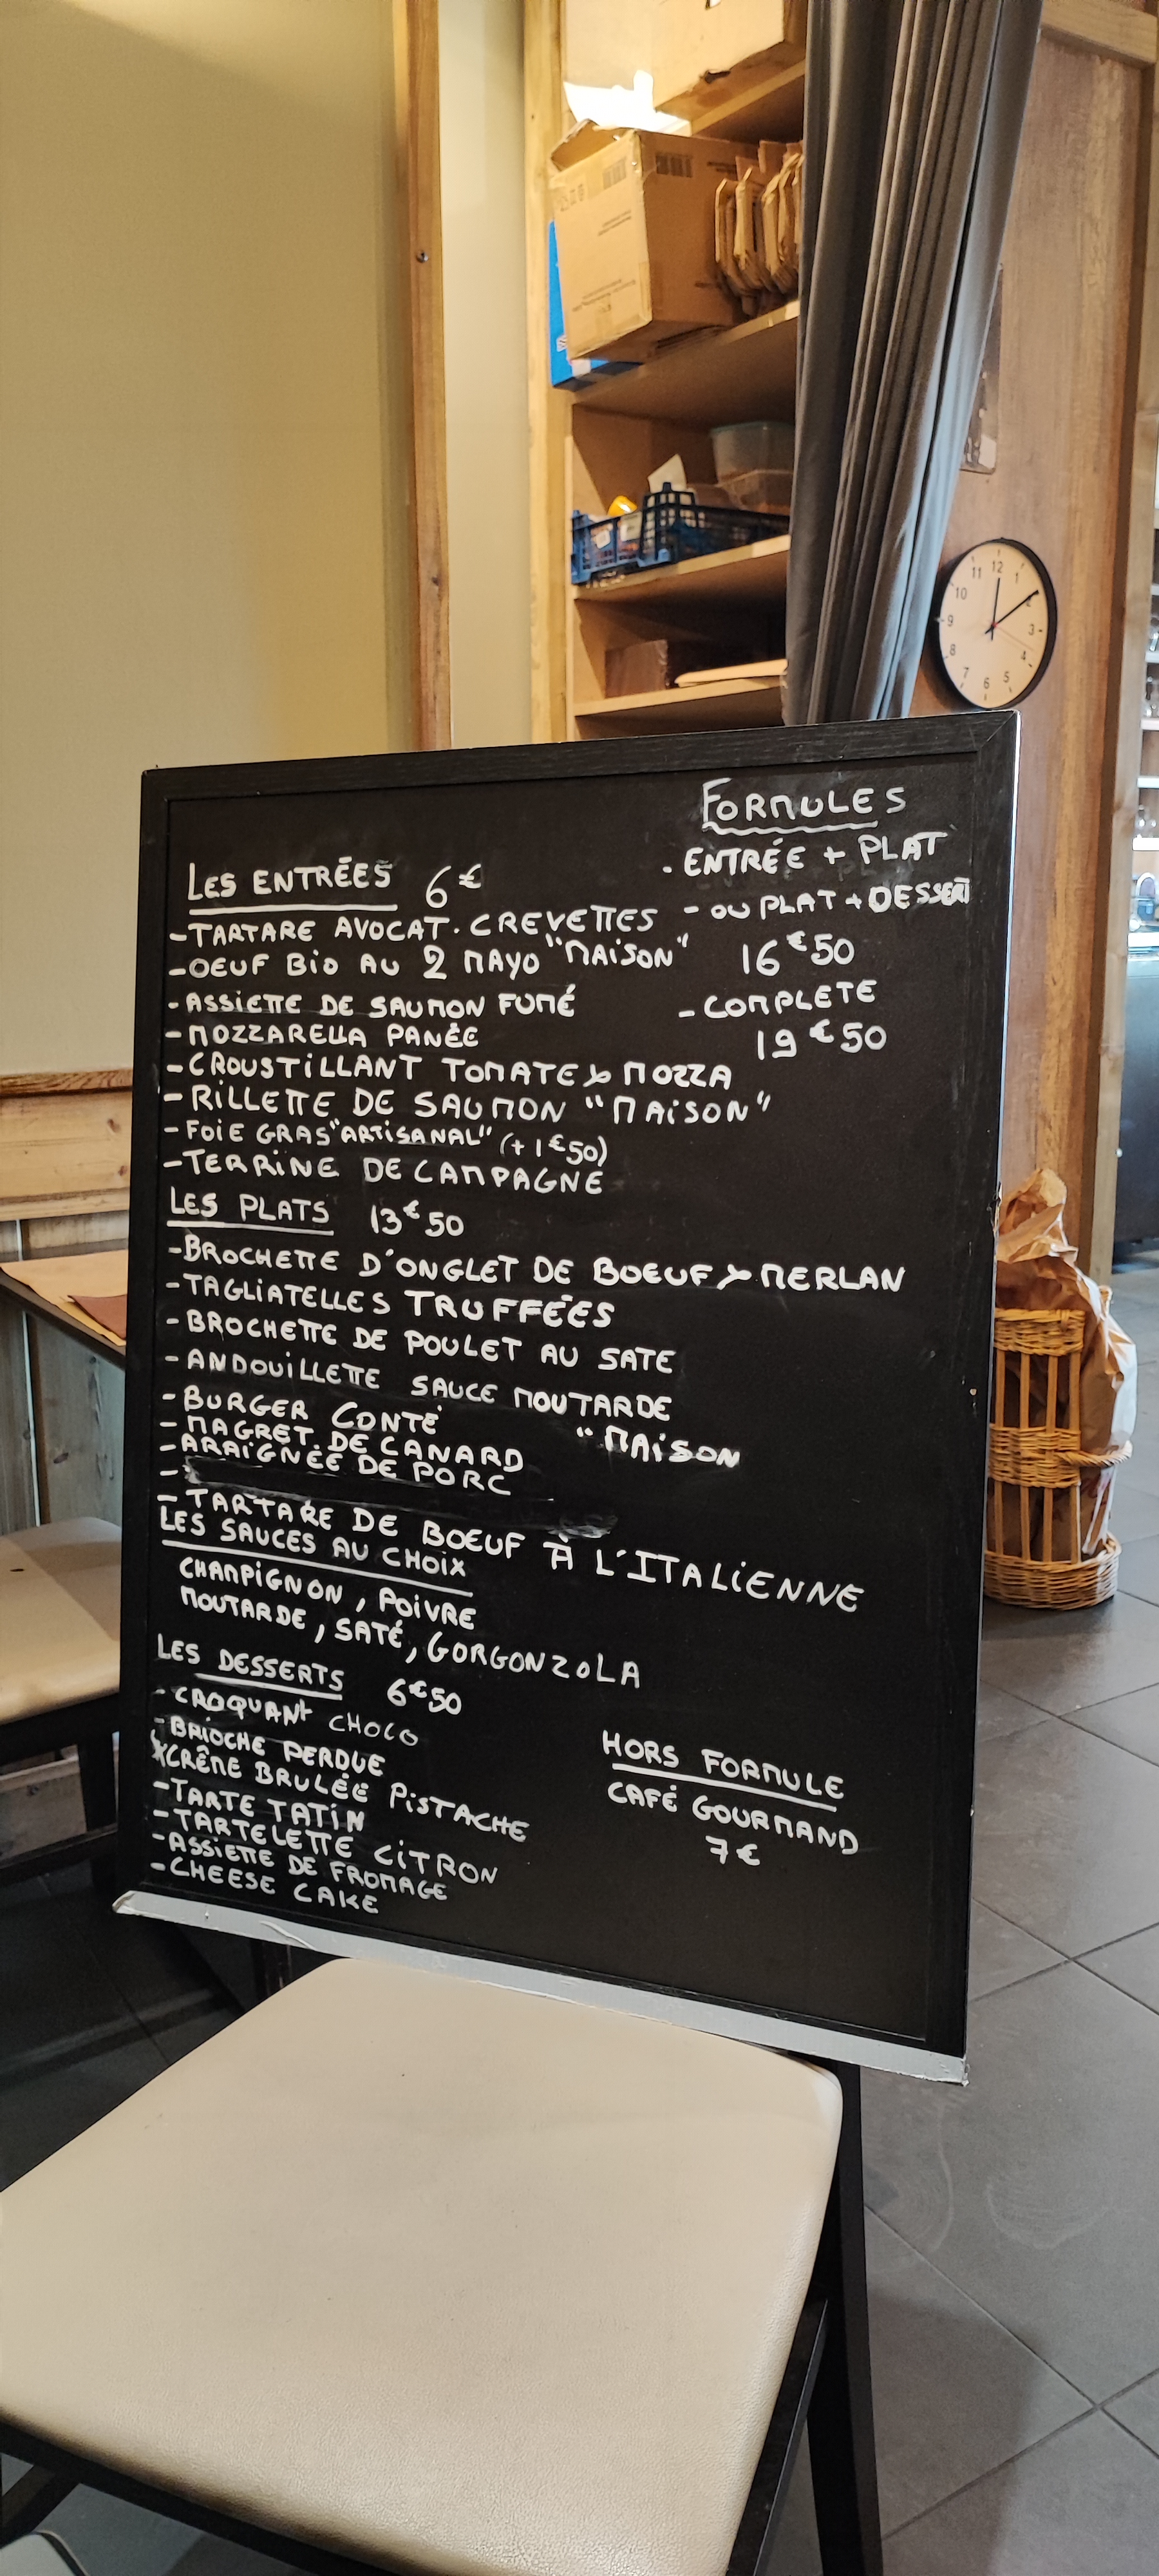 12
1
2
3
4
5
6
7
8
9
10
11
FORMULES
- ENTRÉE + PLAT
- OU PLAT + DESSERT
16€50
- COMPLETE
19€50
LES ENTRÉES 6€
- TARTARE AVOCAT. CREVETTES
- OEUF BIO AU 2 MAYO "MAISON"
- ASSIETTE DE SAUMON FUMÉ
- MOZZARELLA PANÉE
- CROUSTILLANT TOMATE & MOZZA
- RILLETTE DE SAUMON "MAISON"
- FOIE GRAS "ARTISANAL" (+1€50)
- TERRINE DE CAMPAGNE
LES PLATS 13€50
- BROCHETTE D'ONGLET DE BOEUF & MERLAN
- TAGLIATELLES TRUFFÉES
- BROCHETTE DE POULET AU SATE
- ANDOUILLETTE SAUCE MOUTARDE
"MAISON
- BURGER COMTÉ
- MAGRET DE CANARD
- ARAIGNÉE DE PORC
-
- TARTARE DE BOEUF À L'ITALIENNE
LES SAUCES AU CHOIX
CHAMPIGNON, POIVRE
MOUTARDE, SATÉ, GORGONZOLA
LES DESSERTS 6€50
- CROQUANT CHOCO
- BRIOCHE PERDUE
CRÊME BRULÉE PISTACHE
- TARTE TATIN
- TARTELETTE CITRON
- ASSIETTE DE FROMAGE
- CHEESE CAKE
HORS FORMULE
CAFÉ GOURMAND
7€